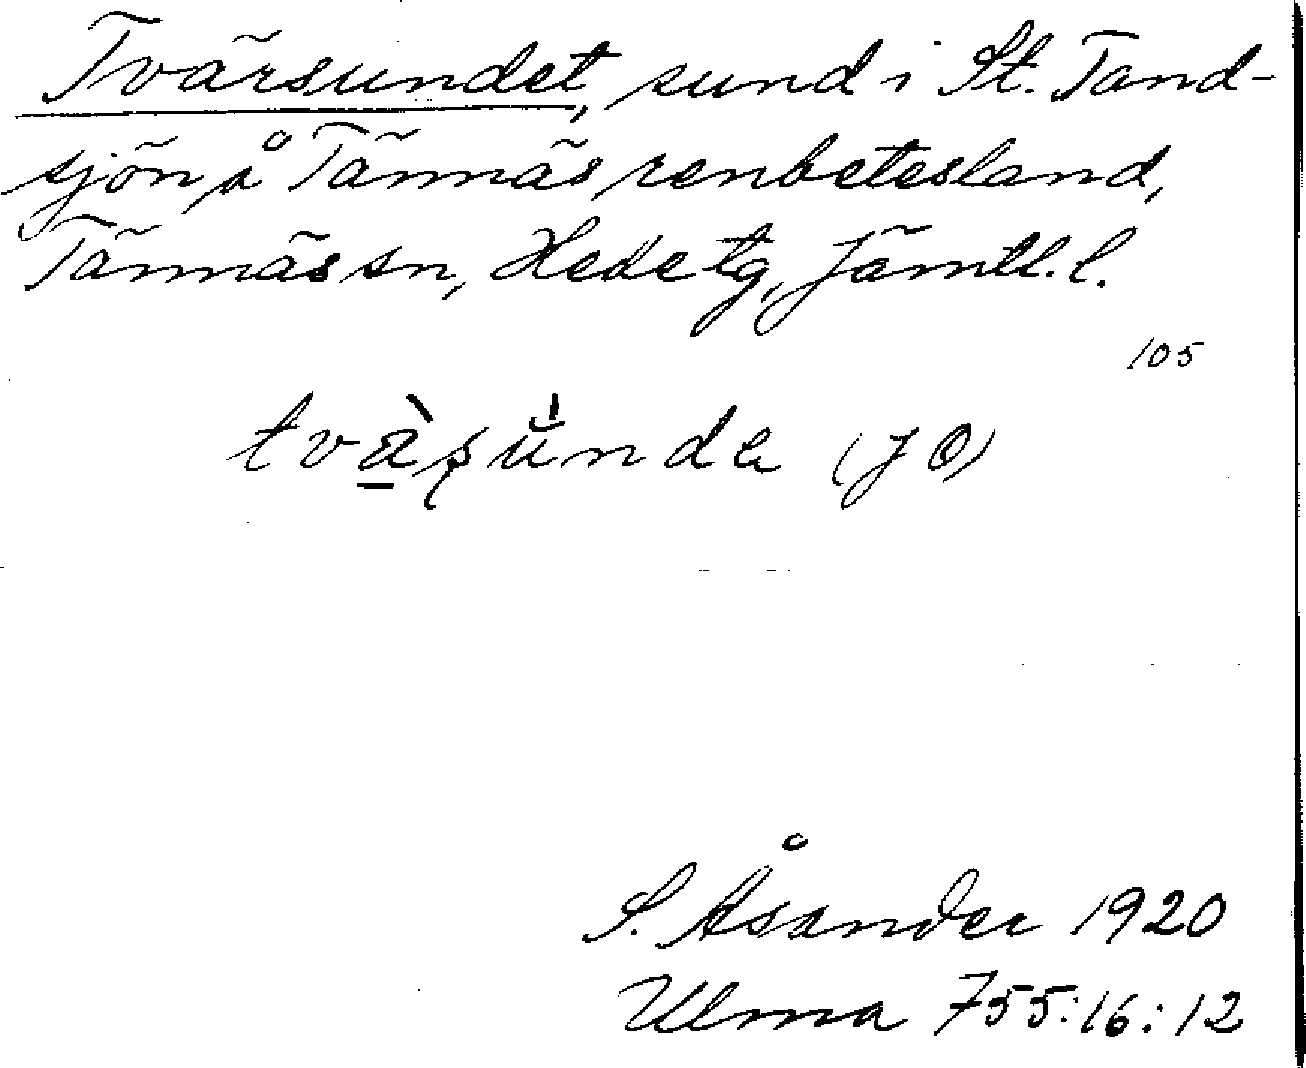 Tvärsundet, sund i St. Tand-
sjön på Tännäs renbetesland,
Tännäs sn, Hede tg, Jämtl. l.
105
(JO)
S. Åsander 1920
Ulma 755:16:12